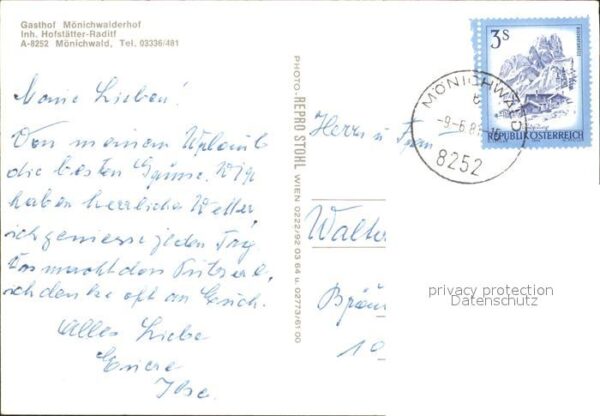 Gasthof Mönichwalderhof
Inh. Hofstätter-Raditf
A-8252 Mönichwald, Tel. 03336/481
Meine Lieben!
Von meinem Urlaub
die besten Grüsse. Wir
haben herrliches Wetter,
ich geniesse jeden Tag.
Was macht den
ich denke oft an Euch.
Alles Liebe
Euere
PHOTO-REPRO STOHL WIEN 0222/92 03 64 u. 02773/61 00
3S
REPUBLIK ÖSTERREICH
MÖNICHWALD
-9.-6.8
8252
Herrn u Frau
Walter
Bräu
10
privacy protection
Datenschutz